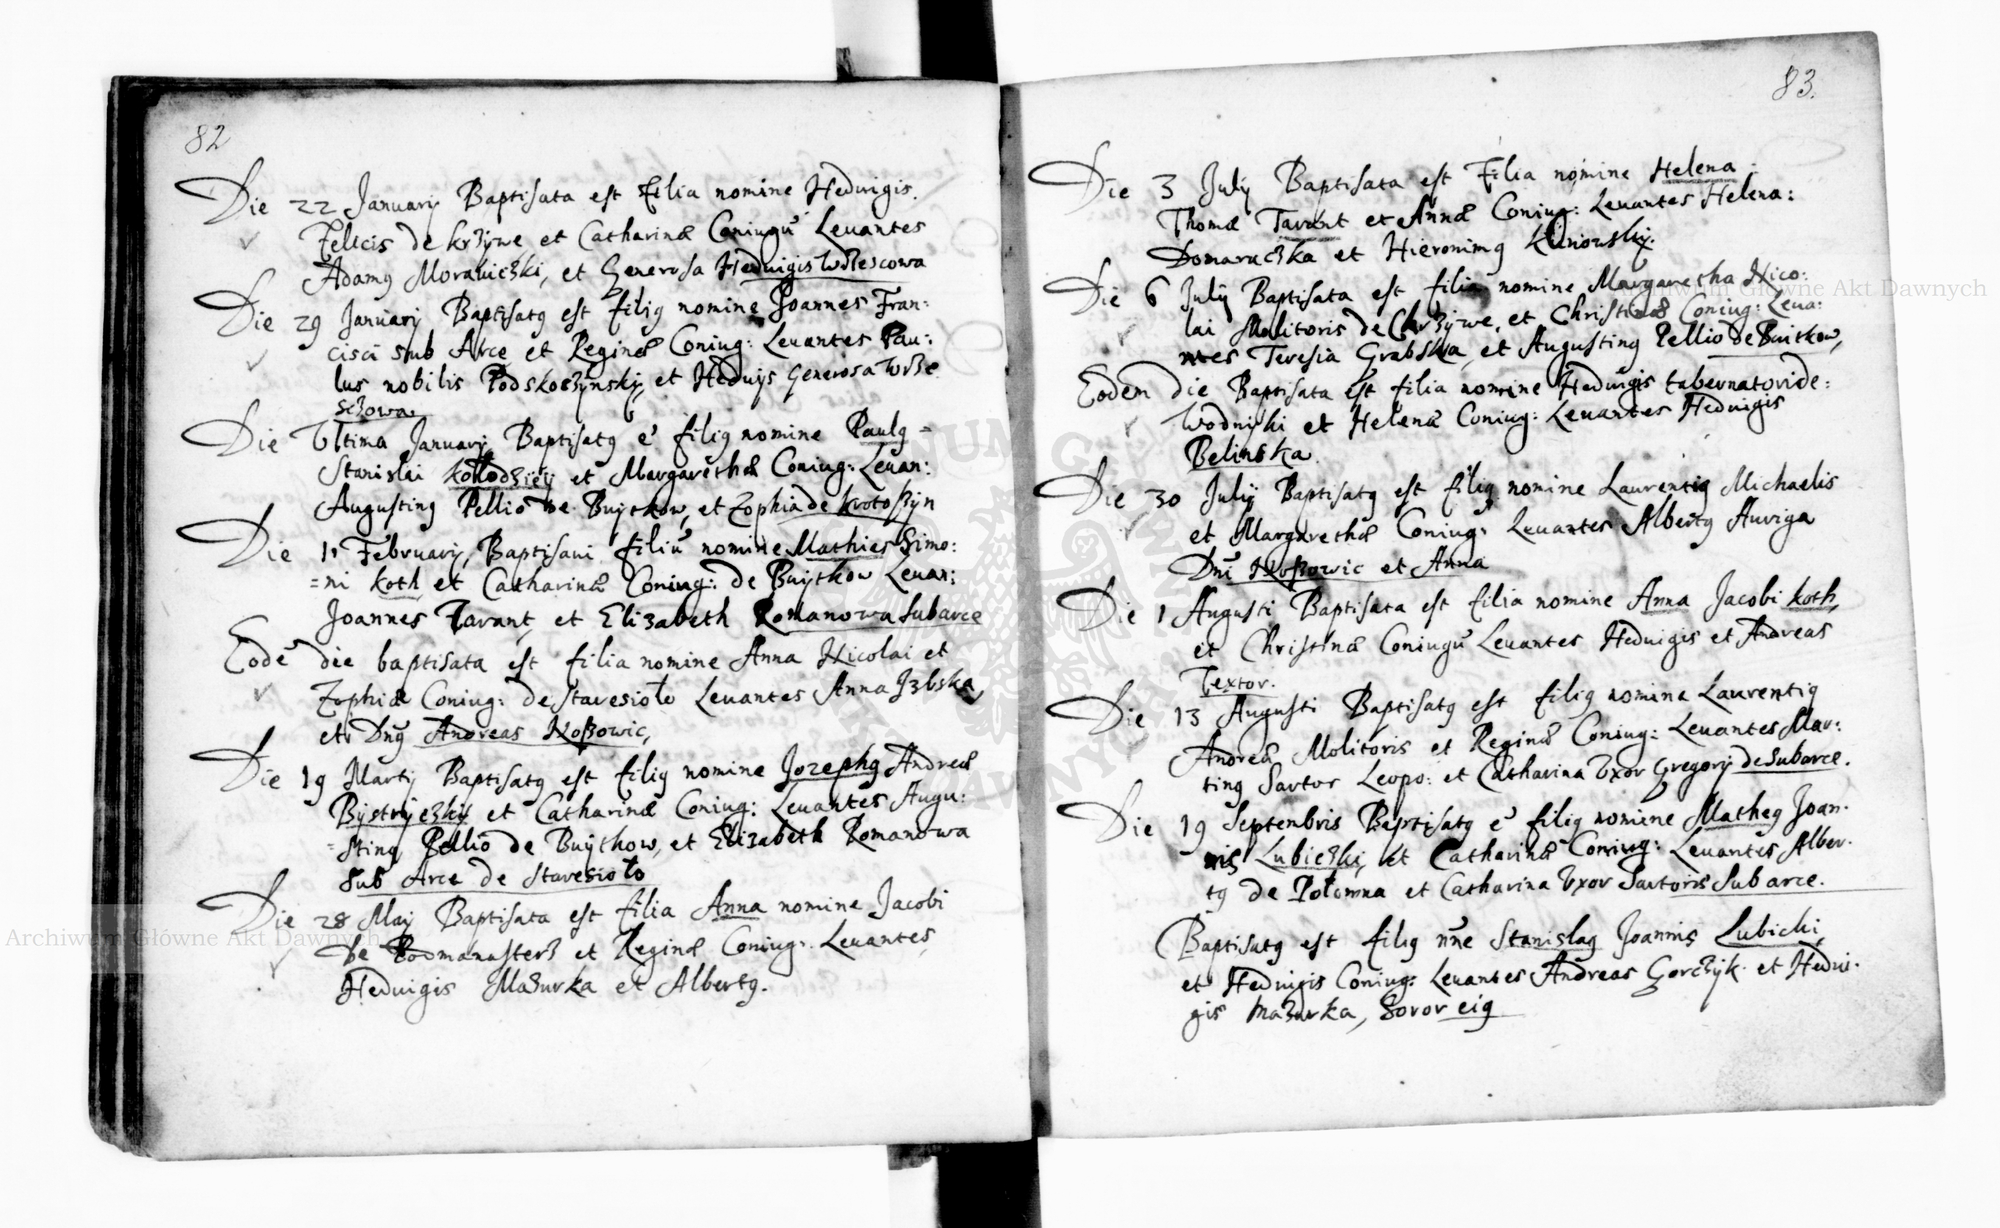 82
Die 22 Januarij Baptisata est filia nomine Hedvigis.
Felicis de krzÿwe et Catharinæ Coniugũ Leuantes
Adamꝯ Morawiczki, et Generosa Hedwigis
Die 29 Januarij Baptisatꝯ est filiꝯ nomine Joannes Fran:
cisci sub Arce et Reginæ Coniug: Leuantes Pau:
lus nobilis Podskoczynskij, et Hedvijs Generosa Wrze
sczowa.
Die Vltima Januarij Baptisatꝯ ẽ filiꝯ nomine Paulꝯ =
Stanislai kołłodzieij et Margarethæ Coniug: Leuan:
Augustinꝯ Pellio de Buijtkow, et Zophia de krotoszÿn
Die 1 Februarij, Baptisaui filiũ nomine Mathies Simo:
=ni koth et Catharinæ Coniug: de Buijtkow Leuan:
Joannes Tarant, et Elizabeth Romanowa subarce
Eodẽ die baptisata est filia nomine Anna Nicolai et
Zophiæ Coniug: de Stavesioło Leuantes Anna Izbska,
et Dnꝯ Andreas Noszowic,
Die 19 Martij Baptisatꝯ est filiꝯ nomine Jozephꝯ Andreæ
Bijstrijczkij et Catharinæ Coniug: Leuantes Augu:
=stinꝯ Pellio de Buijtkow, et Elizabeth Romanowa
sub Arce de Stavesioło
Die 28 Maij Baptisata est filia Anna nomine Jacobi
de Podmanasterz et Reginæ Coniug: Leuantes,
Hedvigis Mazurka et Albertꝯ.
83.
Die 3 Julij Baptisata est Filia nomine Helena:
Thomæ Tarant et Annæ Coniug: Leuantes Helena:
Domaraczka et Hieronimꝯ
Die 6 Julij Baptisata est filia nomine Margaretha Nico:
lai Molitoris de Chrzÿwe, et Christinæ Coniug: Leua:
ntes Teresia Grabska, et Augustinꝯ Pellio de Buitkow,
Eodem die Baptisata est filia nomine Hedwigis tabernatoris de:
Wodniki et Helenæ Coniug: Leuantes Hedvigis
Belinska.
Die 30 Julij Baptisatꝯ est filiꝯ nomine Laurentiꝯ Michaelis
et Margarethæ Coniug: Leuantes Albertꝯ Auriga
Dnĩ Noszowic et Anna
Die 1 Augusti Baptisata est filia nomine Anna Jacobi koth,
et Christinæ Coniugũ Leuantes Hedvigis et Andreas
Textor.
Die 13 Augusti Baptisatꝯ est filiꝯ nomine Laurentiꝯ
Andreæ Molitoris et Reginæ Coniug: Leuantes Mar:
tinꝯ Sartor Leopo: et Catharina Vxor Gregorij de Subarce.
Die 19 Septenbris Baptisatꝯ ẽ filiꝯ nomine Matheꝯ Joan:
nis Lubiczki, et Catharinæ Coniug: Leuantes Alber:
tꝯ de Połomna et Catharina Vxor Sartoris Sub arce.
Baptisatꝯ est filiꝯ nñe Stanislaꝯ Joannis Lubicki,
et Hedvigis Coniug: Leuantes Andreas Gorczÿk et Hedvi:
gis Mazurka, Soror eiꝯ
Archiwum Główne Akt Dawnych
Archiwum Główne Akt Dawnych